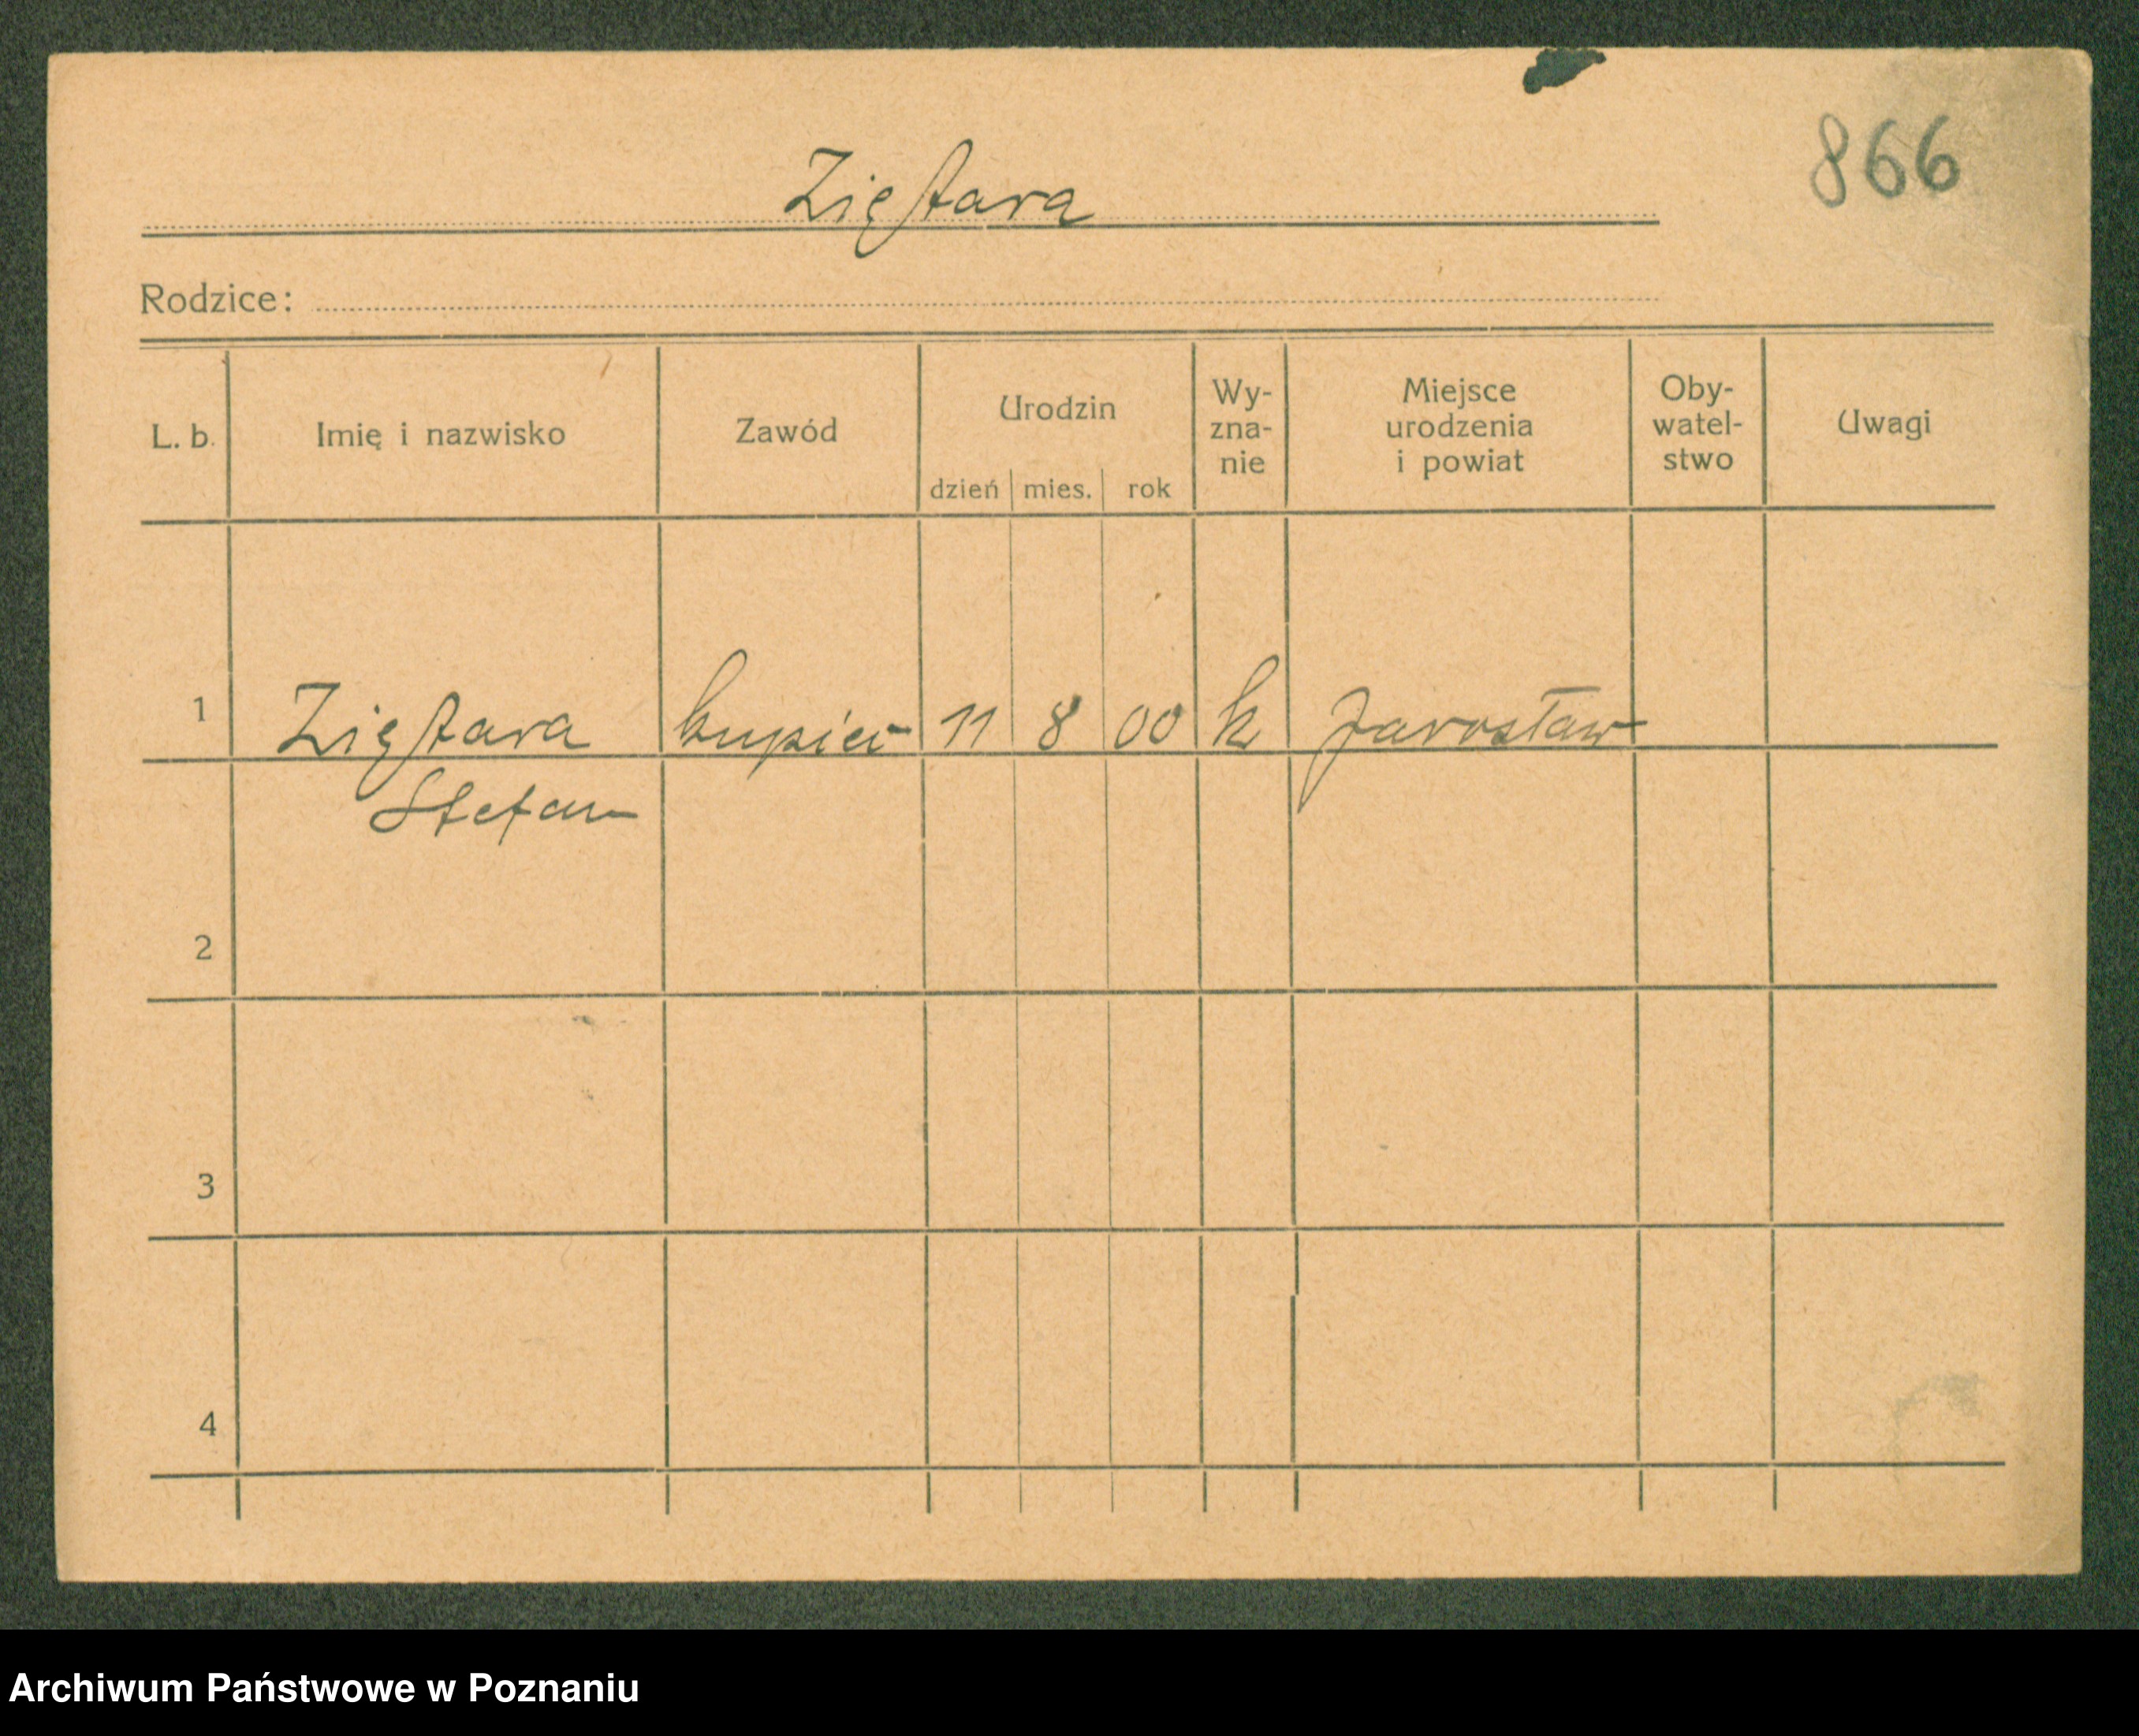 866
Ziętara
Rodzice:
L. b. Imię i nazwisko Zawód Urodzin dzień mies. rok Wy-zna-nie Miejsce urodzenia i powiat Oby-watel-stwo Uwagi
1 Ziętara kupiec 11 8 00 k Jarosław
Stefan
2
3
4
Archiwum Państwowe w Poznaniu